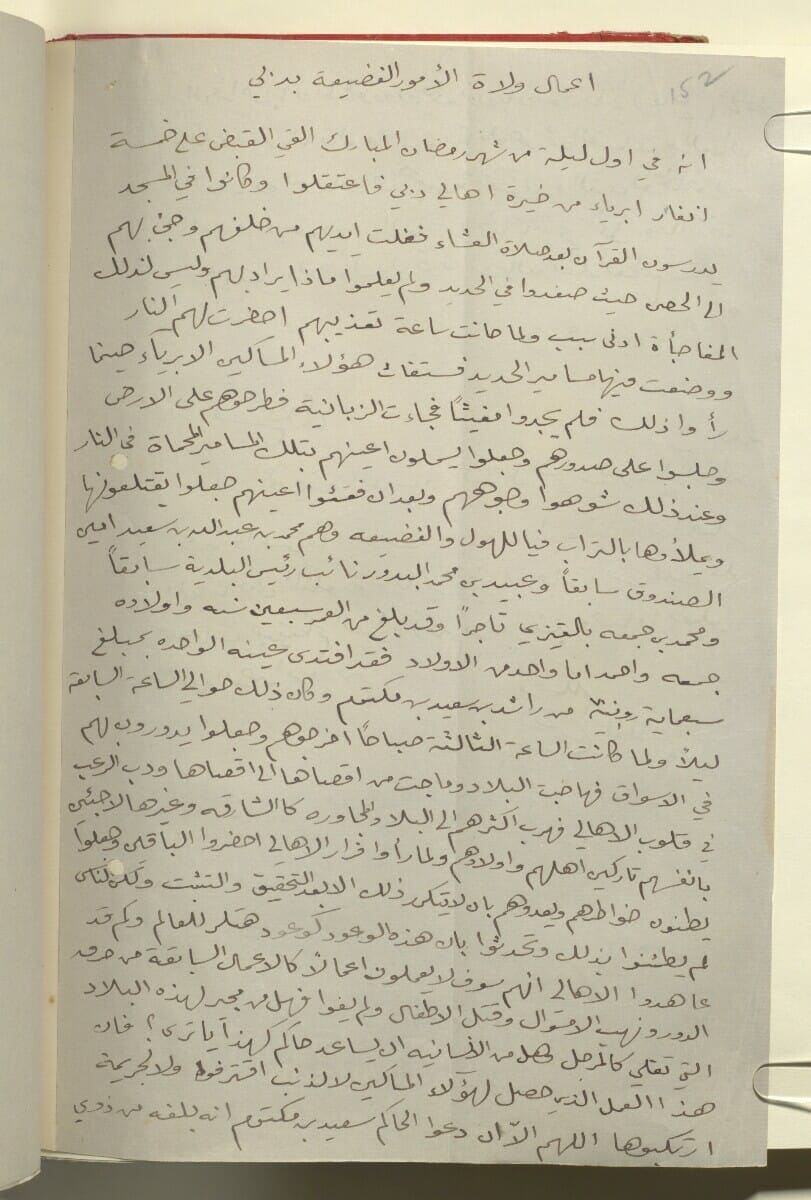 152
اعمال ولاة الأمور الفضيعة بدبي
انه في اول ليلة من شهر رمضان المبارك القي القبض على خمسة
انفار ابرياء من خيرة اهالي دبي فاعتقلوا وكانوا في المسجد
يدرسون القرآن بعد صلاة العشاء فغلت ايديهم من خلفهم وجئ بهم
الى الحصن حيث صفدوا في الحديد ولم يعلموا ماذا يراد بهم وليس لذلك
المفاجأة ادنى سبب ولما حانت ساعة تعذيبهم احضرت لهم النار
ووضعت فيها مسامير الحديد فستغاث هؤلاء المساكين الابرياء حينما
رأوا ذلك فلم يجدوا مغيثاً فجاءت الزبانية فطرحوهم على الارض
وجلسوا على صدورهم وجعلوا يسملون اعينهم بتلك المسامير المحماة في النار
وعند ذلك شوهوا وجوههم وبعد ان فقئوا اعينهم جعلوا يقتلعونها
ويملأوها بالتراب فيا للهول والفضيعه وهم محمد بن عبدالله بن سعيد امين
الصندوق سابقاً وعبيد بن محمد البدور نائب رئيس البلدية سابقاً
ومحمد بن جمعه بالقيزي تاجراً وقد بلغ من العمر سبعين سنه واولاده
جمعه واحمد اما واحد من الاولاد فقد افتدى عينه الواحده بمبلغ
سبعماية روبيّة من راشد بن سعيد بن مكتوم وكان ذلك حوالي الساعة السابقة
ليلاً ولما كانت الساعة الثالثة صباحاً اخرجوهم وجعلوا يدورون بهم
في الاسواق فهاجت البلاد وماجت من اقصاها الى اقصاها ودب الرعب
في قلوب الاهالي فهرب اكثرهم الى البلاد المجاوره كالشارقه وغيرها لاجئين
بانفسهم تاركين اهلهم واولادهم ولما رأوا فرار الاهالي احضروا الباقين وجعلوا
يطمنون خواطرهم ويعدوهم بان لا يتكرر ذلك الا بعد التحقيق والتثبت ولكن الناس
لم يطمئنوا بذلك وتحدثوا بان هذه الوعود كوعود هتلر للعالم وكم قد
عاهدوا الاهالي انهم سوف لا يعملون اعمالاً كالاعمال السابقة من حرق
الدور ونهب الاموال وقتل الاطفال ولم يفوا فهل من مجير لهذه البلاد
التي تغلي كالمرجل وهل من الانسانيه ان يساعد حاكم كهذا يا ترى؟ فان
هذا العمل الذي حصل لهؤلاء المساكين لا لذنب اقترفوه ولا لجريمة
ارتكبوها اللهم الاّ ان دعوا الحاكم سعيد بن مكتوم انه بلغه من ذوي